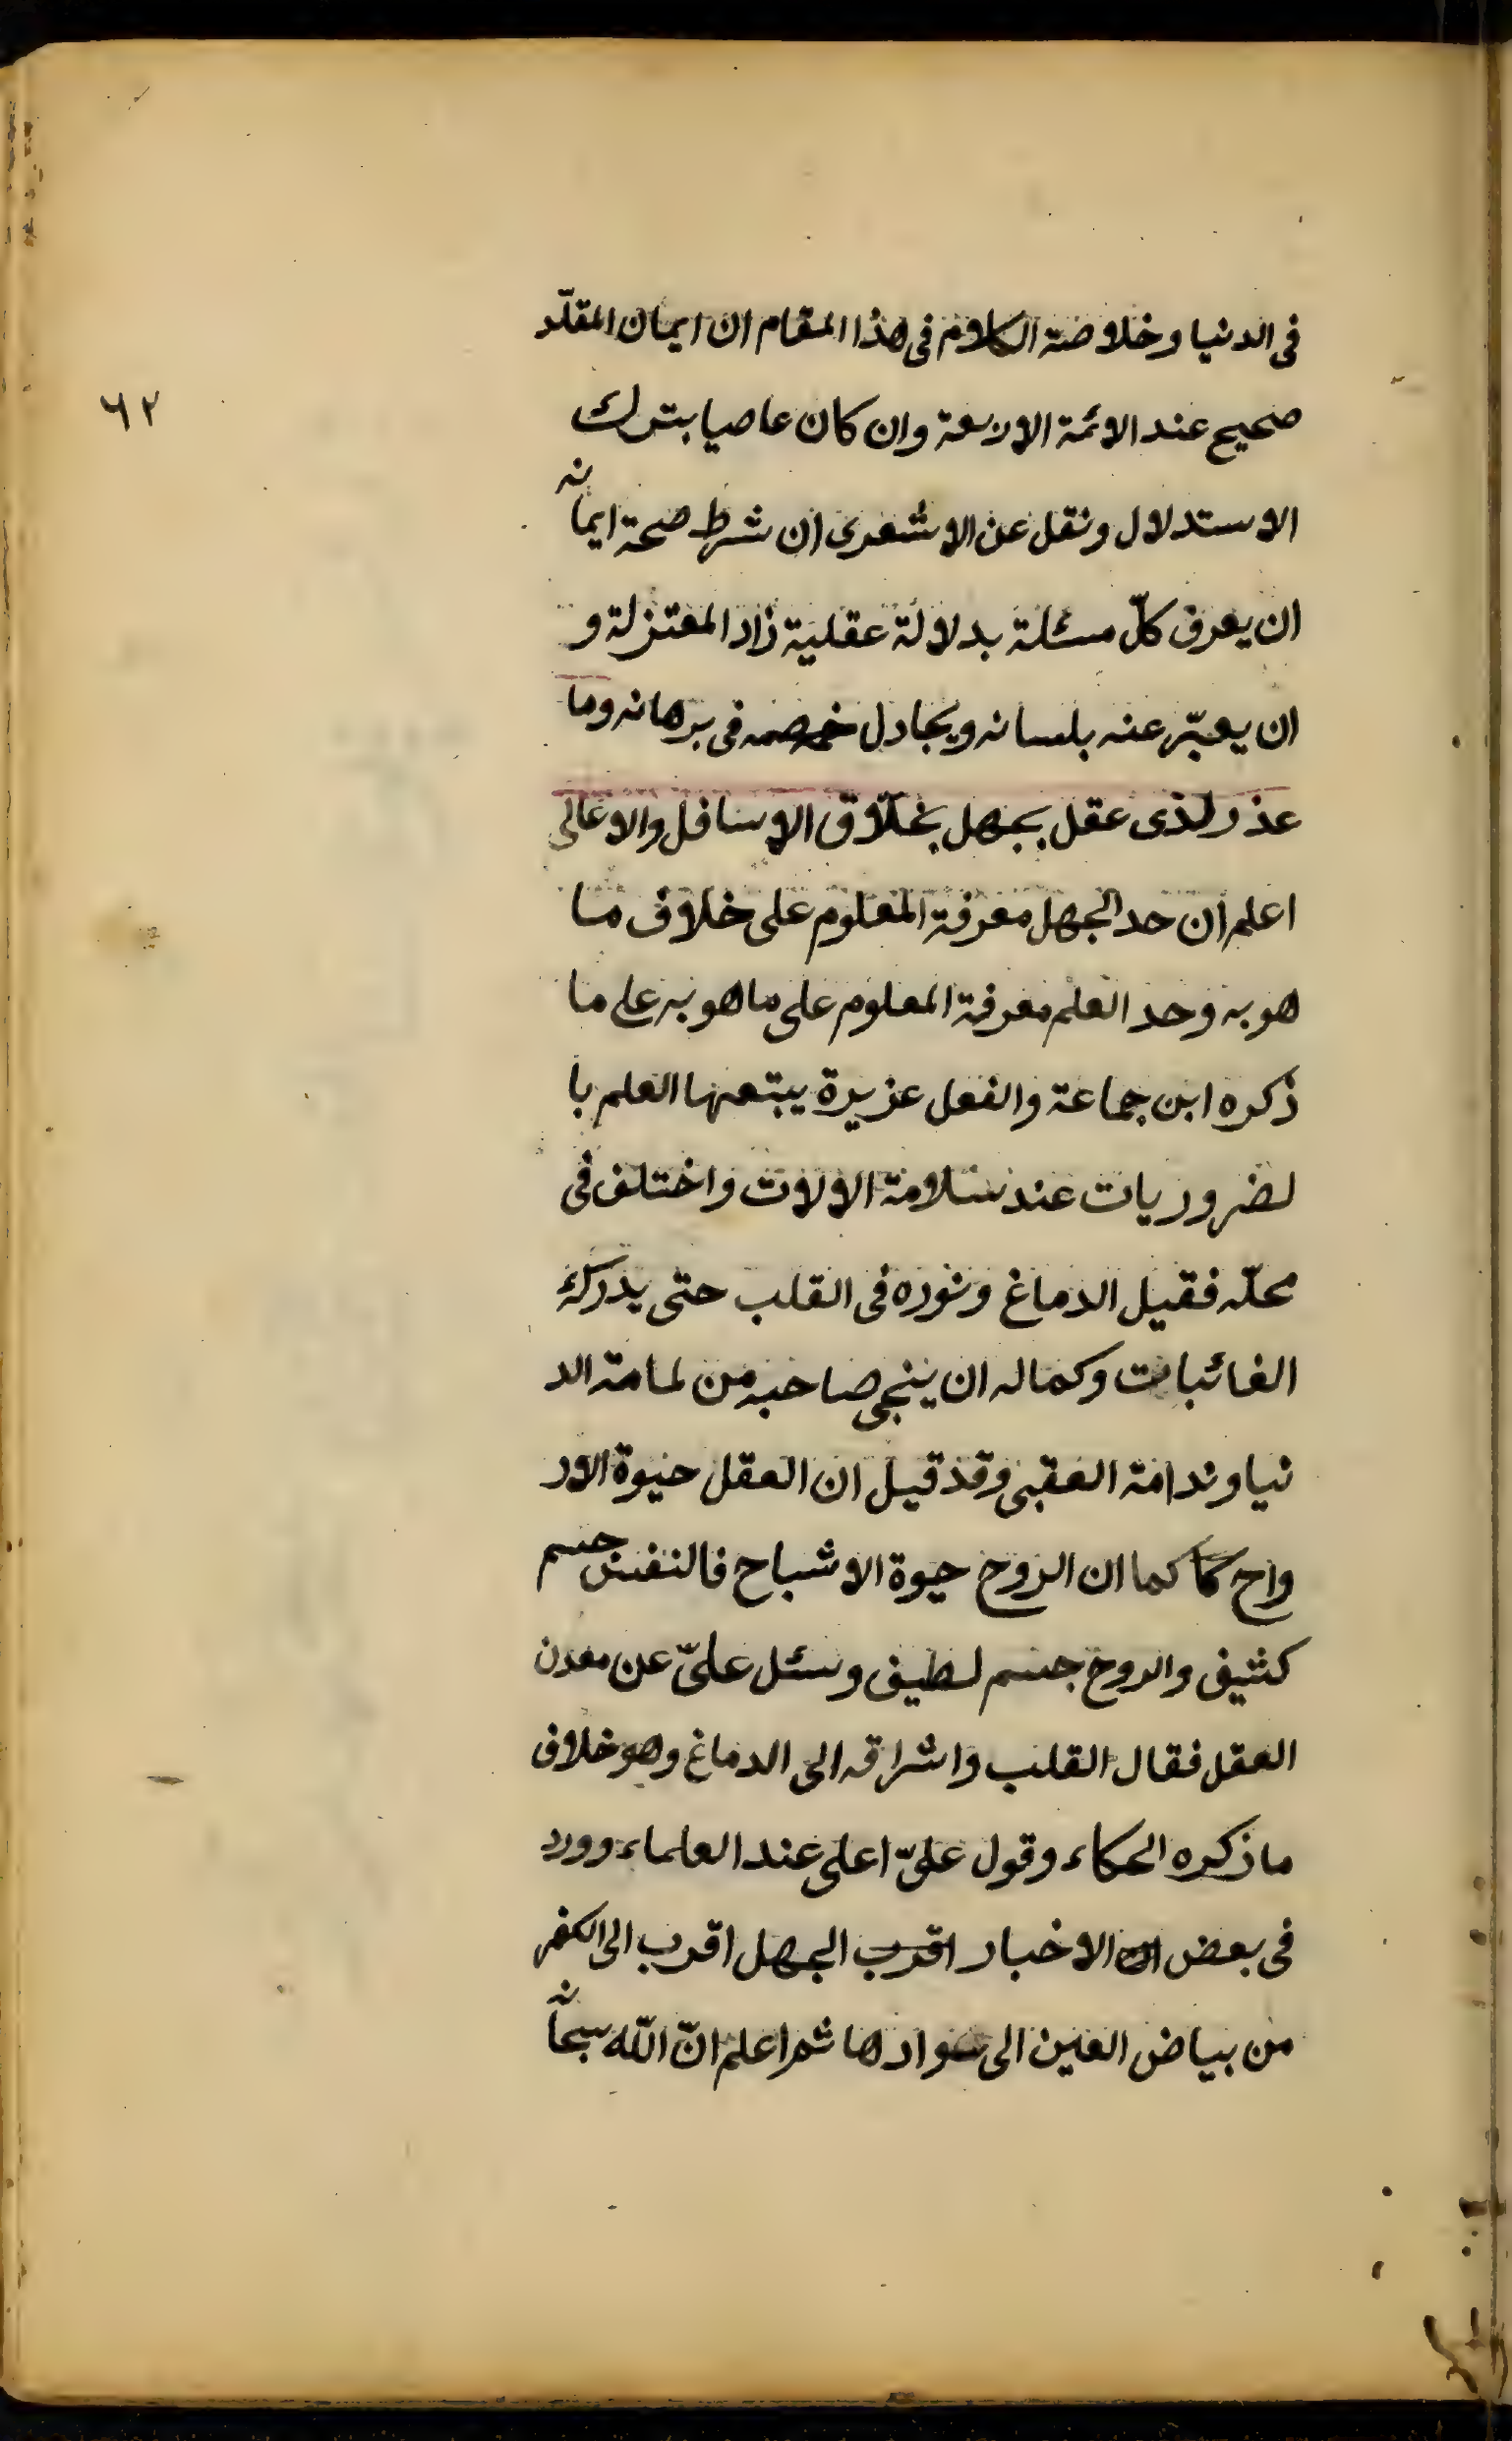 فى الدنيا وخلاصة الكلام فى هذا المقام ان ايمان المقلّد
٦٢
صحيح عند الائمة الاربعة وان كان عاصيا بترك
الاستدلال ونقل عن الاشعرى ان شرط صحة ايمانه
ان يعرف كلّ مسئلة بدلالة عقلية زاد المعتزلة و
ان يعبّر عنه بلسانه ويجادل خصمه فى برهانه وما
عذر لذى عقل بجهل بخلّاق الاسافل والاعالى
اعلم ان حد الجهل معرفة المعلوم على خلاف ما
هو به وحد العلم معرفة المعلوم على ما هو به على ما
ذكره ابن جماعة والفعل عزيرة يبتعها العلم با
لضروريات عند سلامة الالات واختلف فى
محلّه فقيل الدماغ ونوره فى القلب حتى يدرك
الغائبات وكماله ان ينجى صاحبه من لمامة الد
نيا وندامة العقبى وقد قيل ان العقل حيوة الار
واح كما كما ان الروح حيوة الاشباح فالنفس جسم
كثيف والروح جسم لطيف وسئل علىّ عن معدن
العقل فقال القلب واشراقه الى الدماغ وهو خلاف
ما ذكره الحكاء وقول علىّ اعلى عند العلماء وورد
فى بعض الاخبار اقرب الجهل اقرب الى الكفر
من بياض العين الى سوادها ثم اعلم انّ اللّه سبحانه